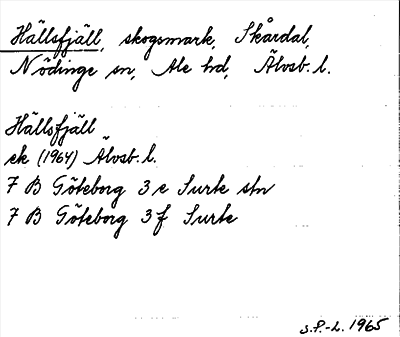 Hällsfjäll, skogsmark, Skårdal,
Nödinge sn, Ale hd, Älvsb. l.
Hällsfjäll
ek (1964) Älvsb. l.
7 B Göteborg 3 e Surte stn
7 B Göteborg 3 f Surte
S.P.-L. 1965